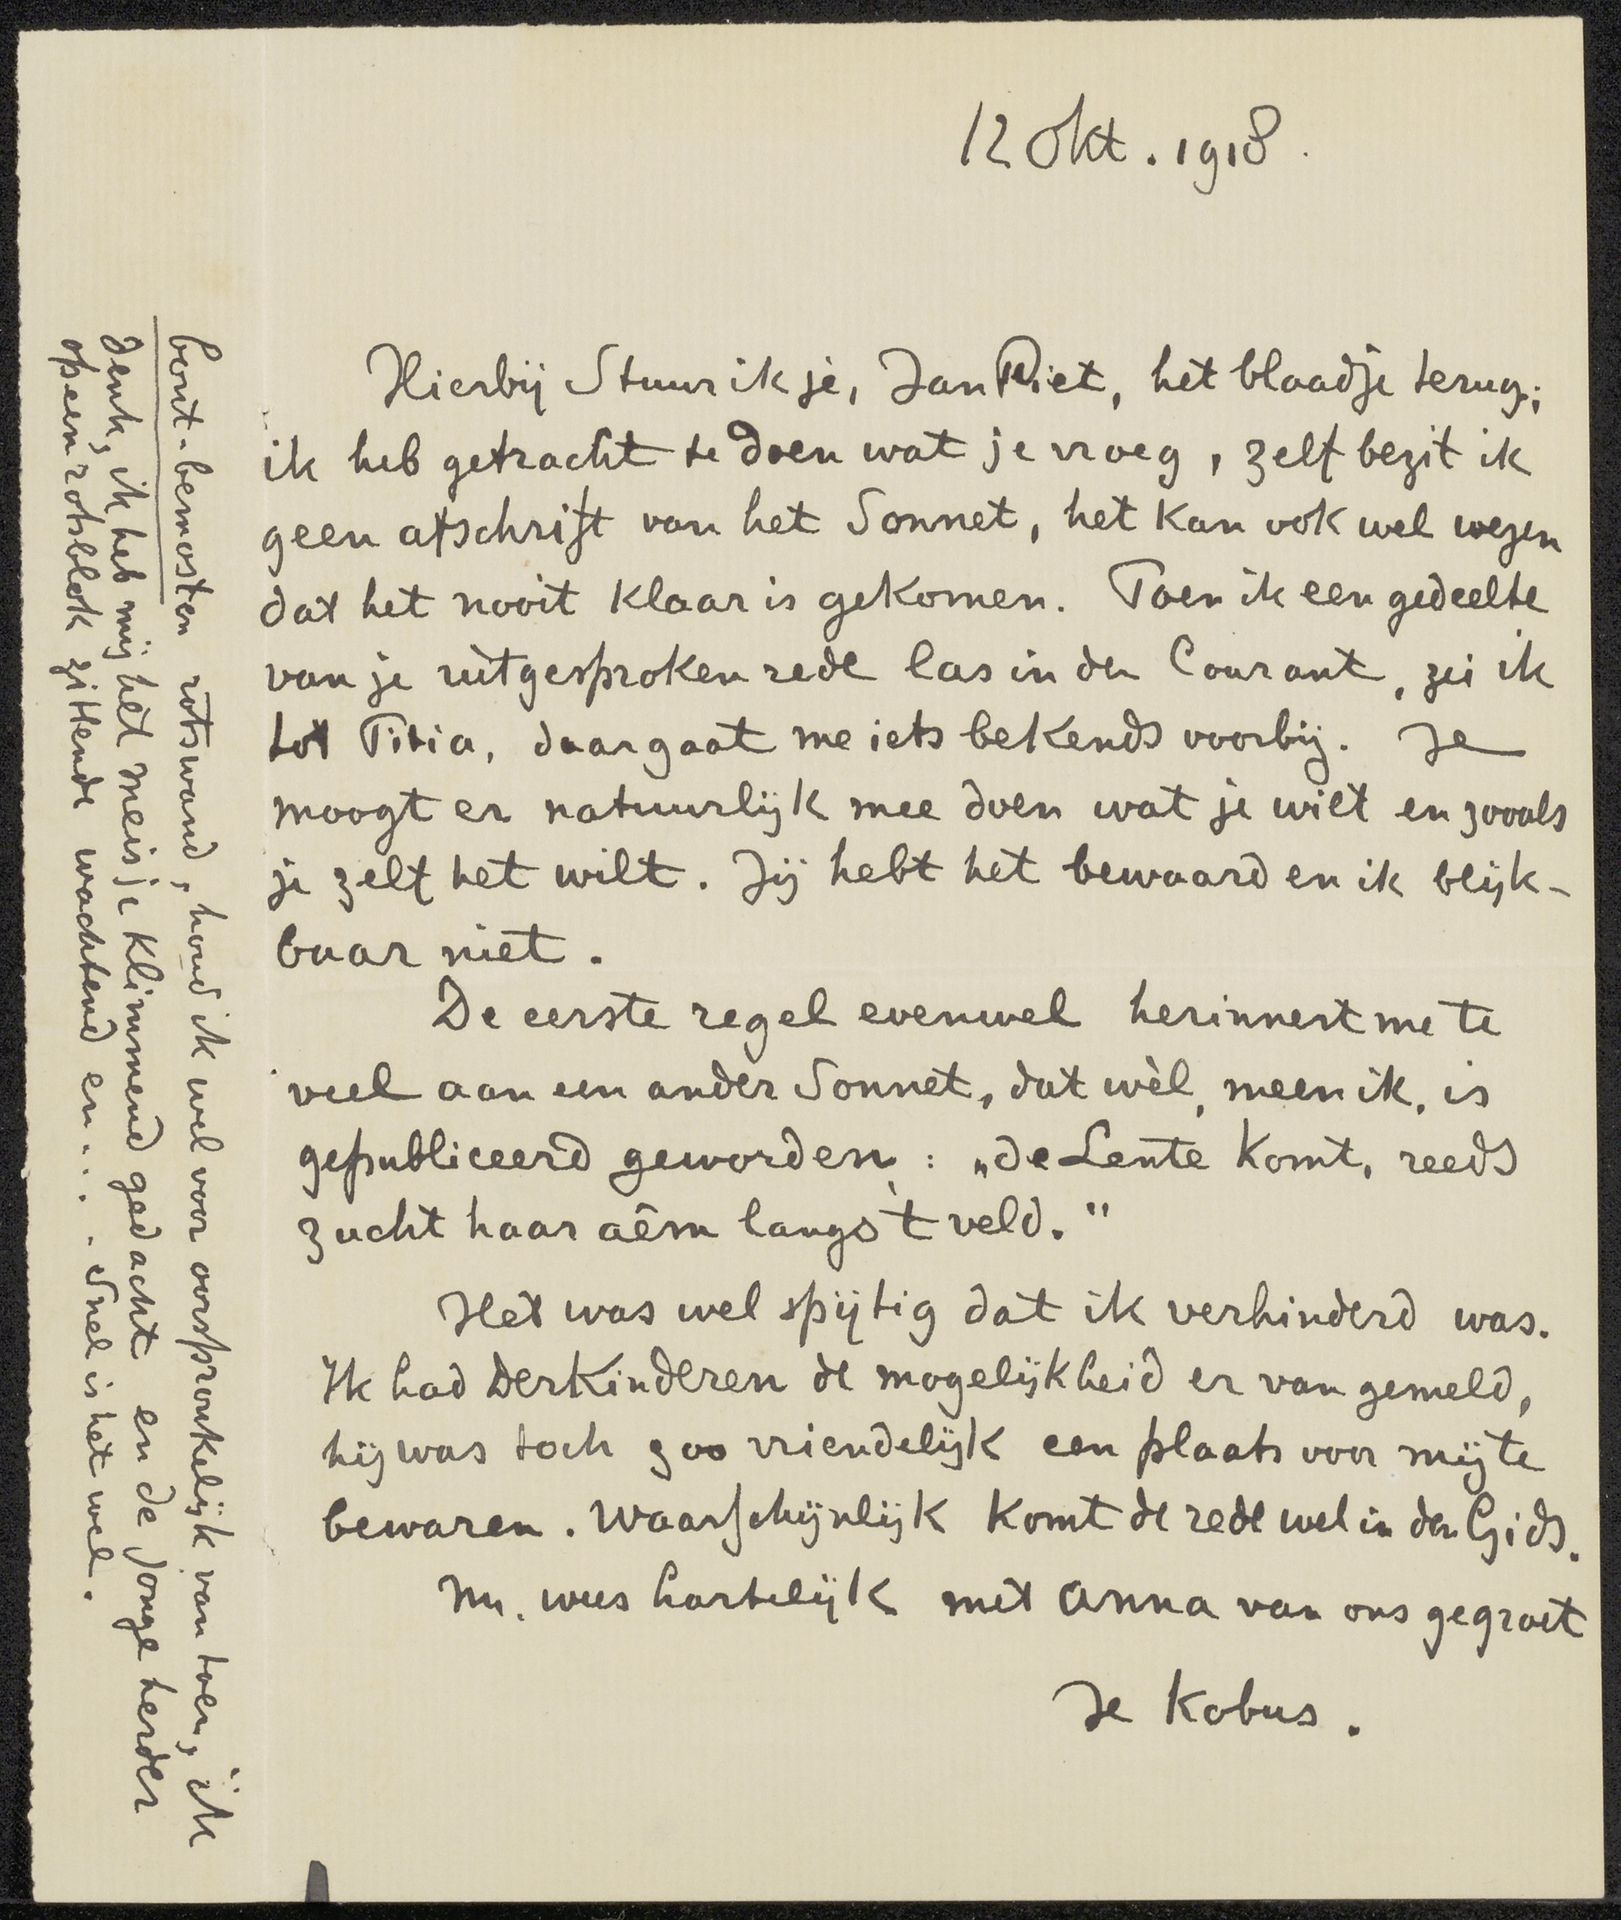 12 Okt. 1918.
Hierbij stuur ik je, Jan Piet, het blaadje terug;
ik heb getracht te doen wat je vroeg, zelf bezit ik
geen afschrift van het Sonnet, het kan ook wel wezen
dat het nooit klaar is gekomen. Toen ik een gedeelte
van je uitgesproken rede las in den Courant, zei ik
tot Titia, daar gaat me iets bekends voorbij. Je
moogt er natuurlijk mee doen wat je wilt en zooals
je zelf het wilt. Jij hebt het bewaard en ik blijk-
baar niet.
De eerste regel evenwel herinnert me te
veel aan een ander Sonnet, dat wèl, meen ik, is
gepubliceerd geworden: „de Lente komt, reeds
zucht haar aêm langs 't veld."
Het was wel spijtig dat ik verhinderd was.
Ik had Derkinderen de mogelijkheid er van gemeld,
hij was toch zoo vriendelijk een plaats voor mij te
bewaren. Waarschijnlijk komt de rede wel in den Gids.
Nu, wees hartelijk met Anna van ons gegroet
Je Kobus.
bont-bemosten rotswand, houd ik wel voor oorspronkelijk van toen, ik
denk, ik heb mij het meisje klimmend gedacht en de jonge herder
op een rotsblok zittende wachtend en.... Snel is het wel.